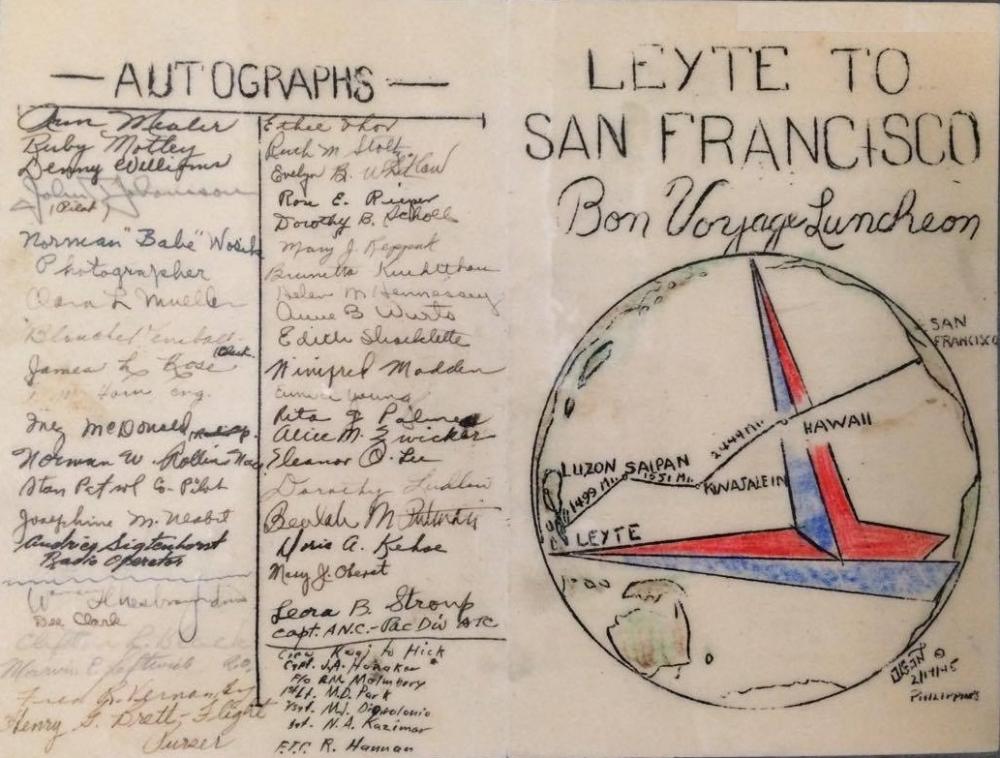 — AUTOGRAPHS —
Ann Mealer
Ruby Motley
Denny Williams
John Johansson
(Pilot)
Norman "Babe"
Photographer
Clara L Mueller
Blanche
James L Rose
eng.
Inez McDonald
Norman W. Rollin
Stan G- Pilot
Josephine M. Nesbit
Audrie Sigtenhorst
Radio Operator
Dee Clark
Marvin E
Fred
Henry G. Flight
Purser
Ethel Thor
Ruth M. Stoltz
Evelyn B. Whitlow
Rose E. Rieper
Dorothy B. Scholl
Mary J. Reppak
Brunetta
Helen M Hennessey
Anne B Wurts
Edith Shacklette
Winifred Madden
Eunice Young
Rita G Palmer
Alice M. Zwicker
Eleanor O. Lee
Dorothy Ludlow
Beulah M Putnam
Doris A. Kehoe
Mary J. Oberst
Leora B. Stroup
Capt. A.N.C.-Pac Div ATC
Crew Kwaj to Hick
Capt. J.A. Honaker
F/o R.M.
1st Lt. M.D. Park
M.J.
N.A. Kazimar
F.T.C. R. Hannan
LEYTE TO
SAN FRANCISCO
Bon Voyage Luncheon
SAN
FRANCISCO
2444 MI.
HAWAII
LUZON SAIPAN
1499 MI. 1551 MI. KWAJALEIN
LEYTE
2/17/45
PHILIPPINES